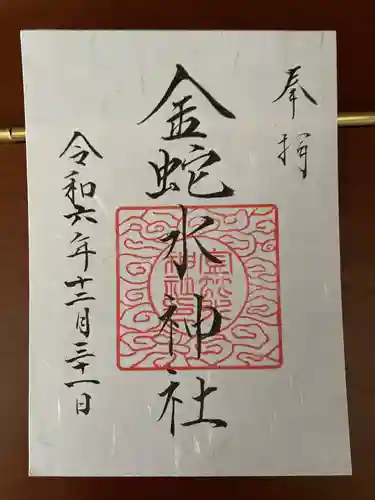 奉拝
金蛇水神社
令和六年十二月三十一日